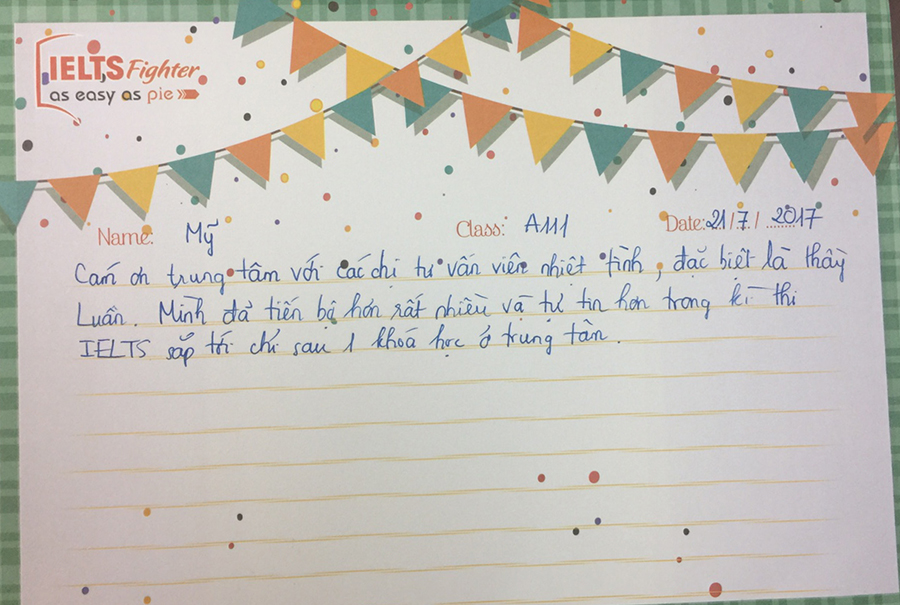 IELTS Fighter
as easy as pie
Name: Mỹ Class: A111 Date: 21/7/2017
Cám ơn trung tâm với các chị tư vấn viên nhiệt tình, đặc biệt là thầy
Luân. Mình đã tiến bộ hơn rất nhiều và tự tin hơn trong kì thi
IELTS sắp tới chỉ sau 1 khoá học ở trung tâm.